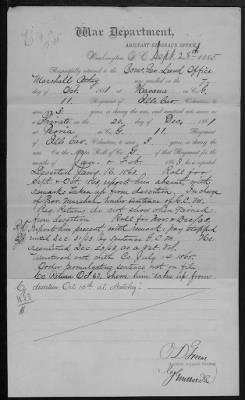 War Department,
ADJUTANT GENERAL'S OFFICE,
Washington, D. C., Sept 28th, 1885
Respectfully returned to the Com'r Gen Land Office
Marshall was enrolled on the 7
day of Oct, 1861, at Havana in Co. G,
11 Regiment of Ills Cav Volunteers, to
serve 3 years, or during the war, and mustered into service as
a Private on the 20 day of Dec, 1861,
at Peoria in Co. G, 11 Regiment of
Ills Cav Volunteers, to serve 3 years, or during
the war. On the Muster Roll of Co. G for the
months of Jan & Feb 1863 he is reported
Deserted Jany 16, 1863. Roll for
Sept & Oct 1863 report him absent, with
remarks Taken up from desertion in charge
of Prov. Marshal under sentence of G.C.M.
Returns do not show when
from desertion. Roll for Nov & Dec /63
Report him present, with remark, pay stopped
until Dec 31/63 by sentence G.C.M. He
reenlisted Dec 20, 63, as a
Mustered out with Co July 14, 1865.
Order promulgating sentence not on file.
Co Return Oct 63 shows him taken up from
desertion Oct 10th at